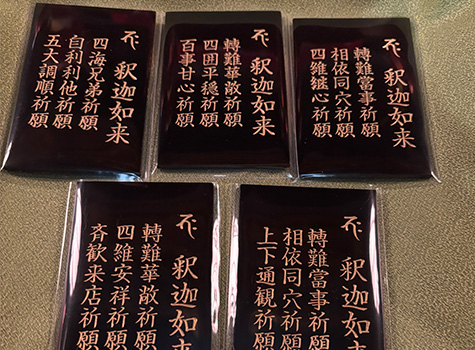 釈迦如来
四海兄弟祈願
自利利他祈願
五大調順祈願
釈迦如来
轉難華敞祈願
四囲平穏祈願
百事甘心祈願
釈迦如来
轉難當事祈願
相依同穴祈願
四維継心祈願
釈迦如来
轉難華敞祈願
四維安祥祈願
斉歓来店祈願
釈迦如来
轉難當事祈願
相依同穴祈願
上下通観祈願